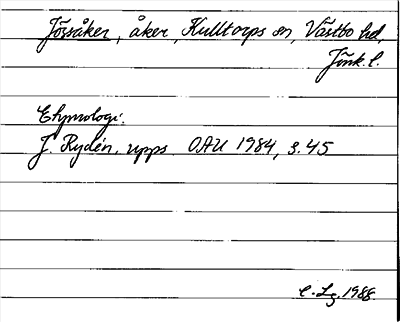 Jössåker, åker, Kulltorps sn, Västbo hd,
Jönk. l.
Etymologi:
J. Rydén, upps OAU 1984, s. 45
C. Lg. 1988